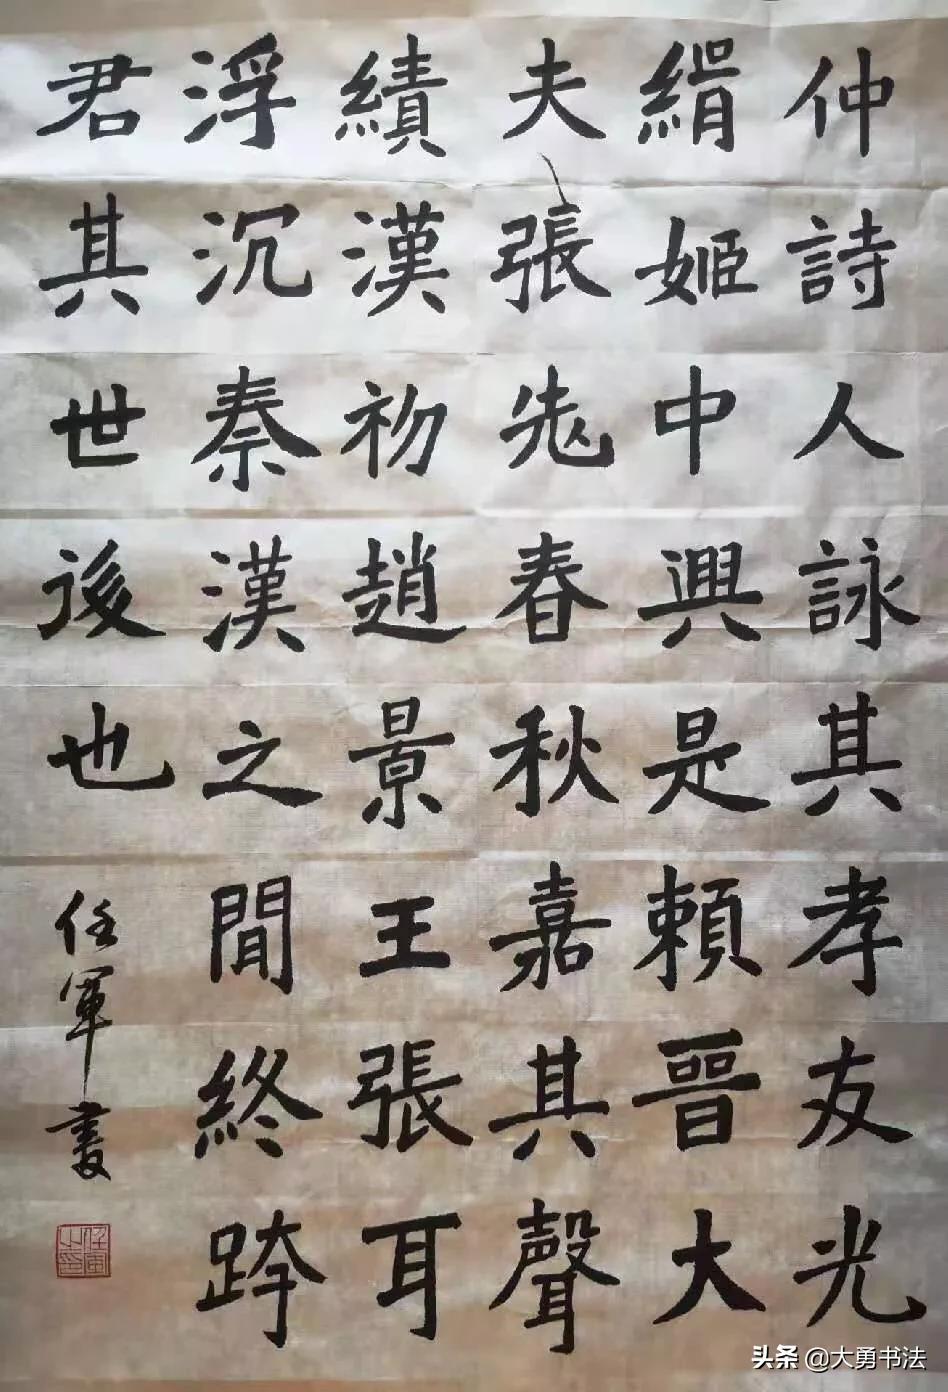 仲詩人詠其孝友光
緝姬中興是賴晉大
夫張老春秋嘉其聲
績漢初趙景王張耳
浮沉秦漢之閒終跨
君其世後也
任軍書
任軍之印
头条 @大勇书法